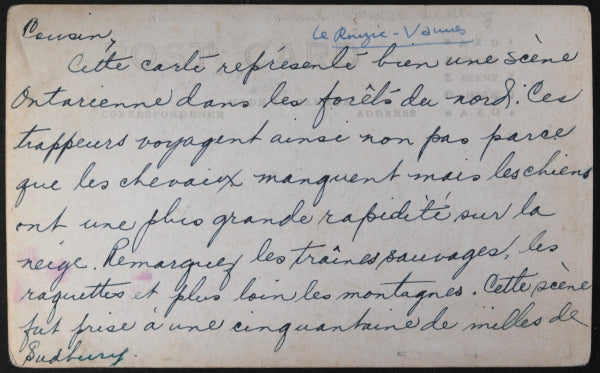 Cousin,
Le Rouzic - Vannes
POST CARD
Cette carte représente bien une scène
Ontarienne dans les forêts du nord. Ces
CORRESPONDENCE
ADDRESS
STAMP
trappeurs voyagent ainsi non pas parce
que les chevaux manquent mais les chiens
ont une plus grande rapidité sur la
neige. Remarquez les traînes sauvages, les
raquettes et plus loin les montagnes. Cette scène
fut prise à une cinquantaine de milles de
Sudbury.